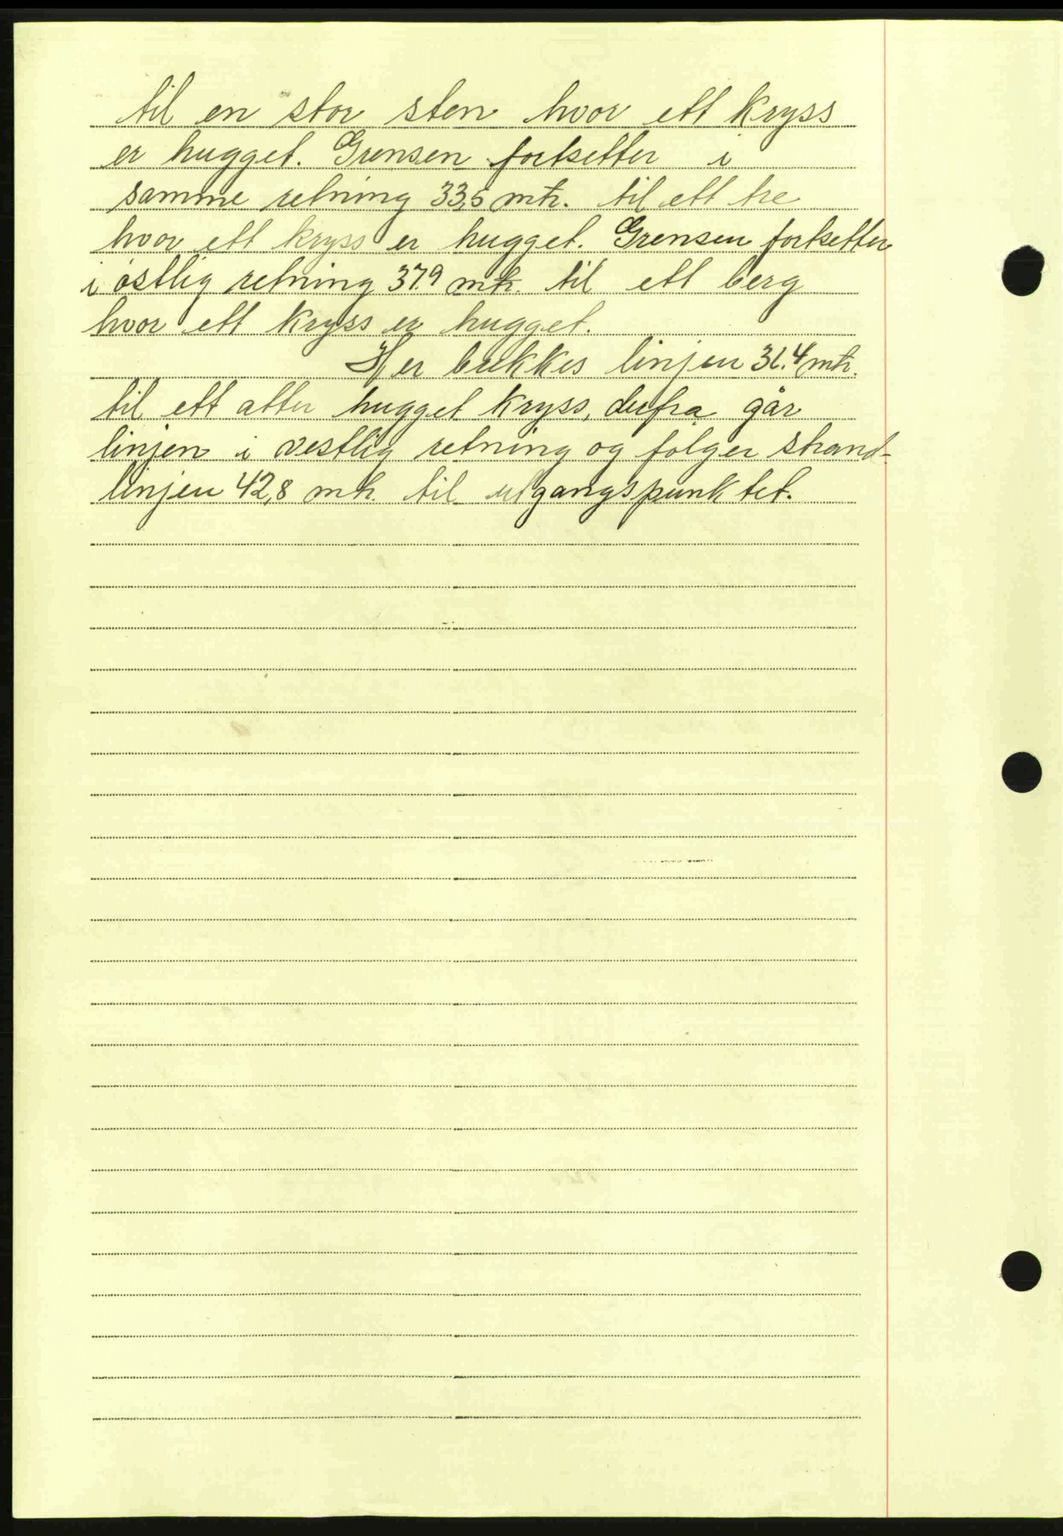 til en stor sten hvor ett kryss
er hugget. Grensen fortsetter i
samme retning 33,5 mtr. til ett tre
hvor ett kryss er hugget. Grensen fortsetter
i østlig retning 37.9 mtr. til ett berg
hvor ett kryss er hugget.
Her brekkes linjen 31.4 mtr.
til ett atter hugget kryss, derfra går
linjen i vestlig retning og følger strand-
linjen 42,8 mtr. til utgangspunktet.